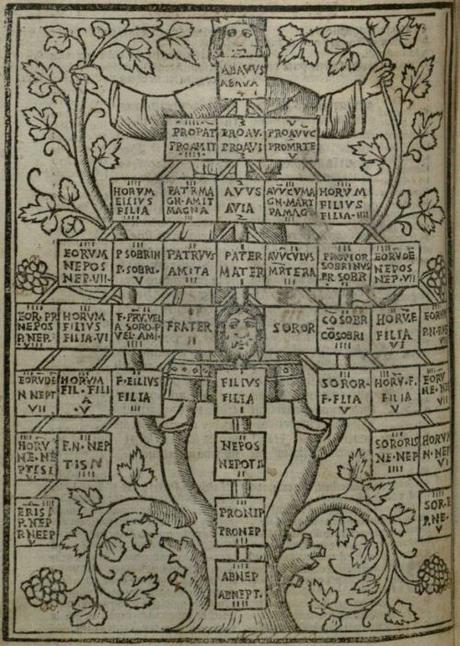 ABAVVS
ABAVA
PROPAT
PROAMIT
PROAV.
PROAVI
PROAVVC
PROMRTE
V
HORVM
FILIVS
FILIA
PATRMA
GN·AMIT
MAGNA
AVVS
AVIA
AVVCVMA
GN·MART
PAMAG
HORVM
FILIVS
FILIA·IIII
EORVM
NEPOS
NEP·VII·
P SOBRIN
P·SOBRI·
V
PATRVVS
AMITA
PATER
MATER
AVVCVLVS
MRTERA
PROPIOR
SOBRINVS
PR SOBR
EORVDE
NEPOS
NEP·VII
EOR·PR
NEPOS
P.NEP.
VIII
HORVM
FILIVS
FILIA·VI
VEL·AMI·
FRATER
SOROR
COSOBR
COSOBRI
HORV·E
FILIA
VI
EORV
EORVDE
N NEPT
VII
HORVM
FIL·FILI
A·V
F·FILIVS
FILIA
FILIVS
FILIA
SOROR·
F·FLIA
V
HORV·F·
FILIA
V
EORV
HORV
NE·NE
PTISI
F·N·NEP
TISIV
NEPOS
NEPOTIS
SORORIS
NE·NEP
IIII
HORVM
PRONIP
PRONEP
SOR·
P.NE·
V
ABNEP
ABNEPT.
IIII